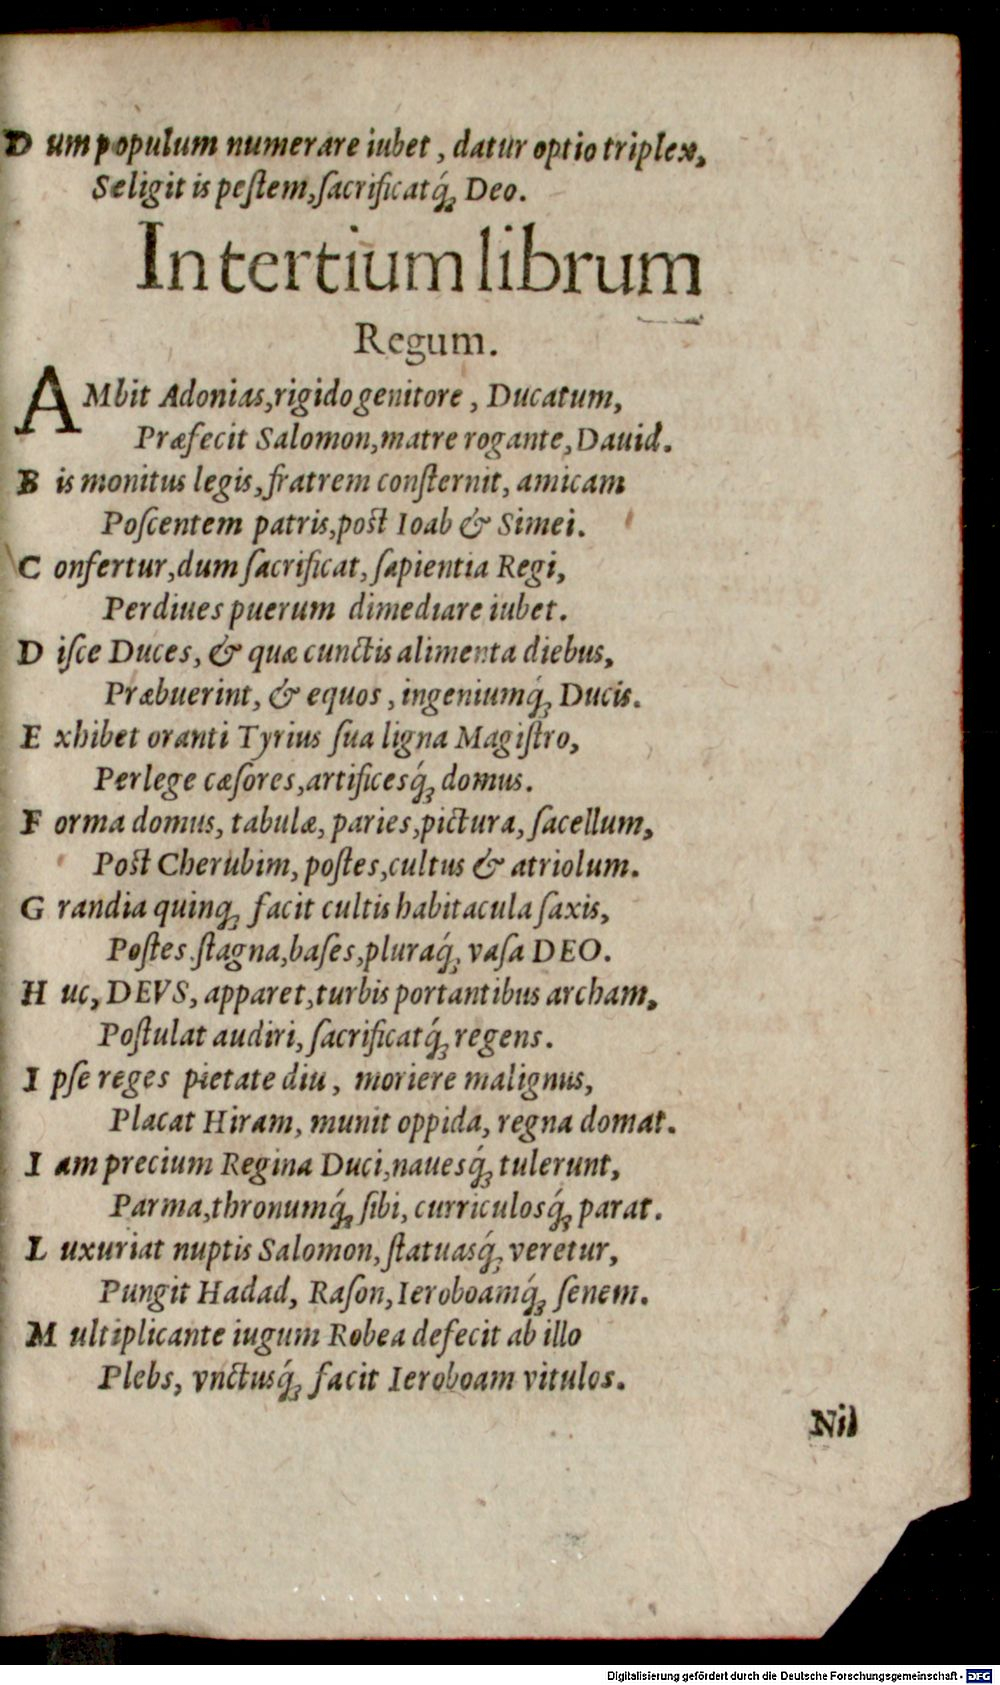 D um populum numerare iubet, datur optio triplex,
Seligit is peſtem, ſacrificatq́ꝫ Deo.
In tertium librum
Regum.
AMbit Adonias, rigido genitore, Ducatum,
Præfecit Salomon, matre rogante, Dauid.
B is monitus legis, fratrem conſternit, amicam
Poſcentem patris, poſt Ioab & Simei.
C onfertur, dum ſacrificat, ſapientia Regi,
Perdiues puerum dimediare iubet.
D iſce Duces, & quæ cunctis alimenta diebus,
Præbuerint, & equos, ingeniumq́ꝫ Ducis.
E xhibet oranti Tyrius ſua ligna Magiſtro,
Perlege cæſores, artificesq́ꝫ domus.
F orma domus, tabulæ, paries, pictura, ſacellum,
Poſt Cherubim, poſtes, cultus & atriolum.
G randia quinqꝫ facit cultis habitacula ſaxis,
Poſtes. ſtagna, baſes, pluraq́ꝫ vaſa DEO.
H uc, DEVS, apparet, turbis portantibus archam,
Poſtulat audiri, ſacrificatq́ꝫ regens.
I pſe reges pietate diu, moriere malignus,
Placat Hiram, munit oppida, regna domat.
I am precium Regina Duci, nauesq́ꝫ tulerunt,
Parma, thronumq́ꝫ ſibi, curriculosq́ꝫ parat.
L uxuriat nuptis Salomon, ſtatuasq́ꝫ veretur,
Pungit Hadad, Raſon, Ieroboamq́ꝫ ſenem.
M ultiplicante iugum Robea defecit ab illo
Plebs, vnctusq́ꝫ facit Ieroboam vitulos.
Nil
Digitalisierung gefördert durch die Deutsche Forschungsgemeinschaft - DFG